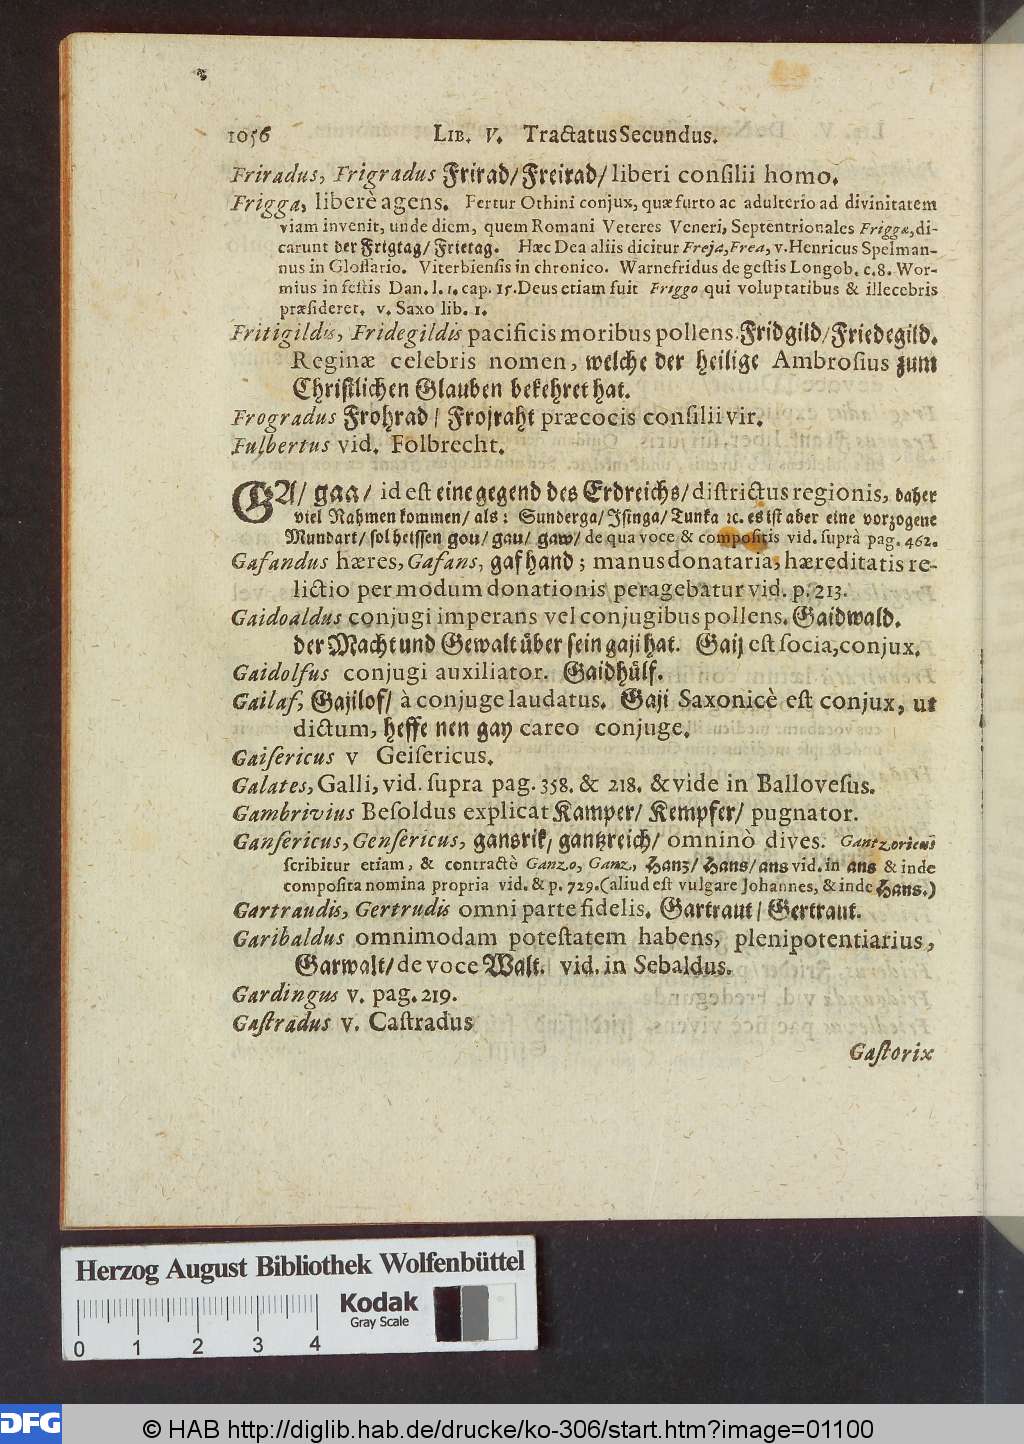 1056 LIB. V. Tractatus Secundus.
Friradus, Frigradus Frirad/ Freirad/ liberi conſilii homo.
Frigga, liberè agens. Fertur Othini conjux, quæ furto ac adulterio ad divinitatem
viam invenit, unde diem, quem Romani Veteres Veneri, Septentrionales Friggæ, di-
carunt der Frigtag/ Frietag. Hæc Dea aliis dicitur Freja, Frea, v. Henricus Spelman-
nus in Gloſſario. Viterbienſis in chronico. Warnefridus de geſtis Longob. c. 8. Wor-
mius in feſtis Dan. l. 1. cap. 15. Deus etiam fuit Friggo qui voluptatibus & illecebris
præſideret. v. Saxo lib. 1.
Fritigildis, Fridegildis pacificis moribus pollens. Fridgild/ Friedegild.
Reginæ celebris nomen, welche der heilige Ambroſius zum
Chriſtlichen Glauben bekehret hat.
Frogradus Frohrad/ Frojraht præcocis conſilii vir.
Fulbertus vid. Folbrecht.
GA/ gaa/ id eſt eine gegend des Erdreichs/ diſtrictus regionis, daher
viel Nahmen kommen/ als: Sunderga/ Jſinga/ Tunka ꝛc. es iſt aber eine vorzogene
Mundart/ ſol heiſſen gou/ gau/ gaw/ de qua voce & compoſitis vid. ſuprà pag. 462.
Gafandus hæres, Gafans, gafhand; manus donataria, hæreditatis re-
lictio per modum donationis peragebatur vid. p. 213.
Gaidoaldus conjugi imperans vel conjugibus pollens. Gaidwald.
der Macht und Gewalt über ſein gaji hat. Gaij eſt ſocia, conjux.
Gaidolfus conjugi auxiliator. Gaidhülf.
Gailaf, Gajilof/ à conjuge laudatus. Gaji Saxonicè eſt conjux, ut
dictum, heffe nen gay careo conjuge.
Gaiſericus v Geiſericus.
Galates, Galli, vid. ſupra pag. 358. & 218. & vide in Balloveſus.
Gambrivius Beſoldus explicat Kamper/ Kempfer/ pugnator.
Ganſericus, Genſericus, gansrik/ gantzreich/ omninò dives. Gantzoricus
ſcribitur etiam, & contractè Ganzo, Ganz, Hanz/ Hans/ ans vid. in ans & inde
compoſita nomina propria vid. & p. 729. (aliud eſt vulgare Johannes, & inde Hans.)
Gartraudis, Gertrudis omni parte fidelis. Gartraut/ Gertraut.
Garibaldus omnimodam poteſtatem habens, plenipotentiarius,
Garwalt/ de voce Walt. vid. in Sebaldus.
Gardingus v. pag. 219.
Gaſtradus v. Caſtradus
Gaſtorix
Herzog August Bibliothek Wolfenbüttel
Kodak
Gray Scale
0 1 2 3 4
DFG © HAB http://diglib.hab.de/drucke/ko-306/start.htm?image=01100